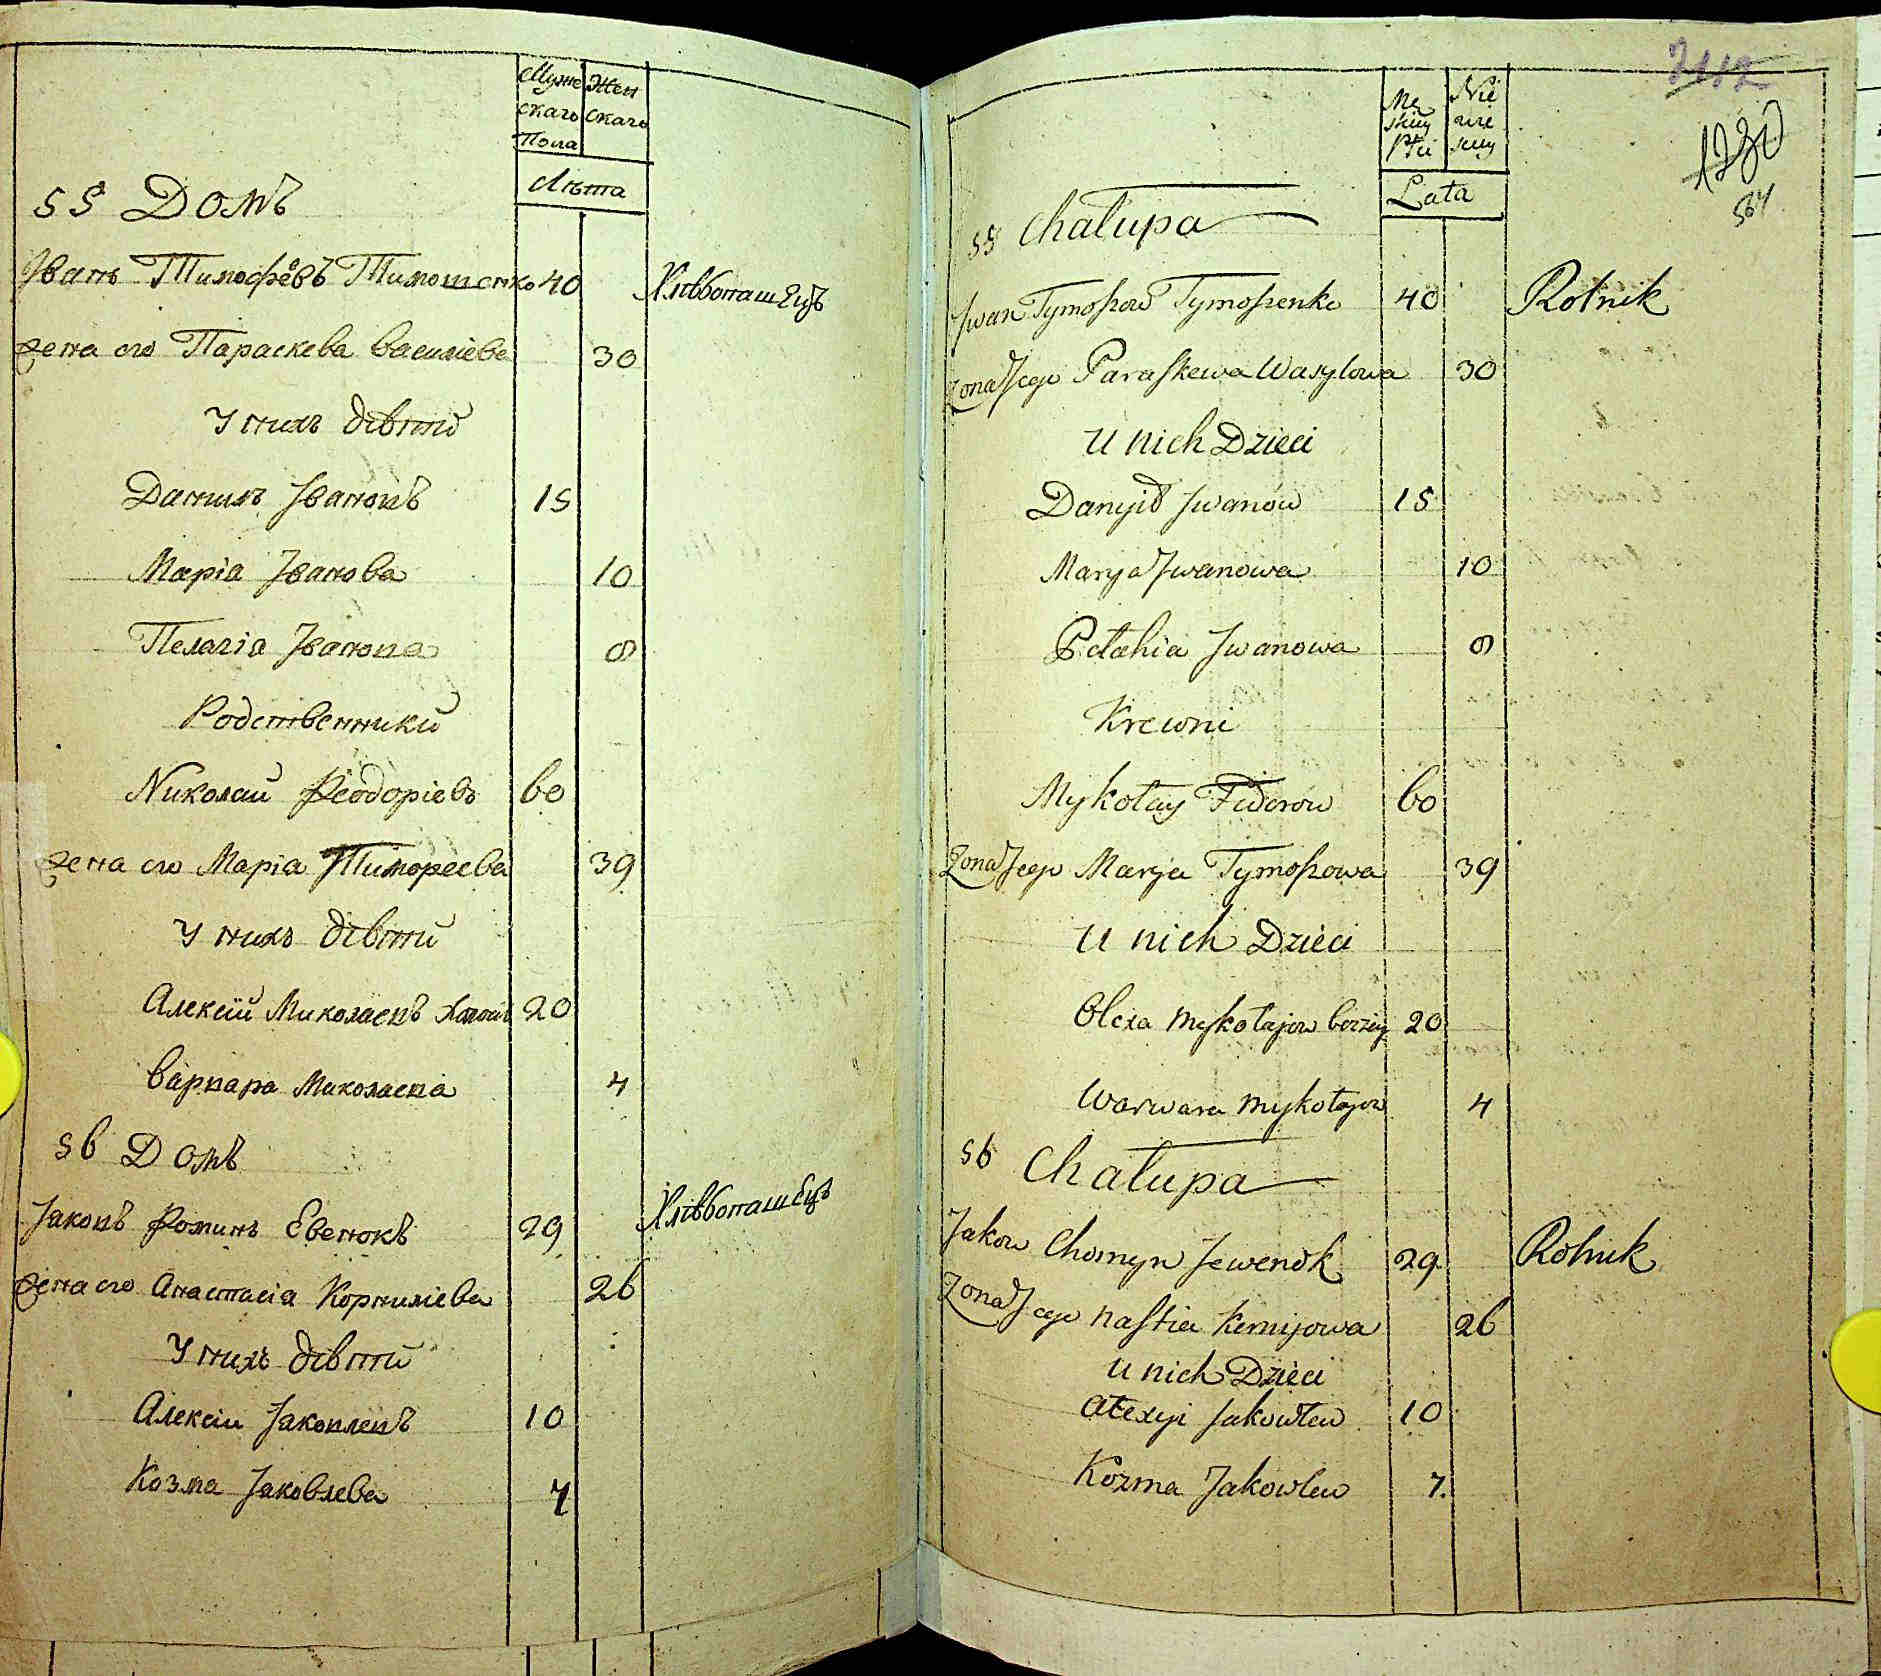 Муже Жен
скаго скаго
Пола
Лѣта
55 Домъ
Іванъ Тимофѣевъ Тимошенко 40 Хлѣбопашецъ
жена его Параскева Василіева 30
У нихъ дѣтей
Даниилъ Івановъ 15
Маріа Іванова 10
Пелагіа Іванова 8
Родственники
Николай Феодоріевъ 60
жена его Маріа Тимофеева 39
У нихъ дѣти
Алексій Миколаевъ Холост 20
Варвара Миколаева 4
56 Домъ
Іаковъ Фоминъ Евенокъ 29 Хлѣбопашецъ
жена его Анастасіа Корниліева 26
У нихъ дѣти
Алексіи Іаковлевъ 10
Козма Іаковлева 7
1230
564
Mę Nie
skiey wie
Płci skiey
Lata
55 Chałupa
Jwan Tymoszow Tymoszenko 40 Rolnik
Zona Jego Paraskewa Wasylowa 30
U nich Dzieci
Danyił Jwanow 15
Marya Jwanowa 10
Pełahia Jwanowa 8
Krewni
Mykołay Fedorow 60
Zona Jego Marya Tymoszowa 39
U nich Dzieci
Olexa Mykołajow 20
Warwara Mykołajow 4
56 Chałupa
Jakow Chomyn Jewenok 29 Rolnik
Zona Jego Nastia Kernijowa 26
U nich Dzieci
Ałexyi Jakowlew 10
Kozma Jakowlew 7